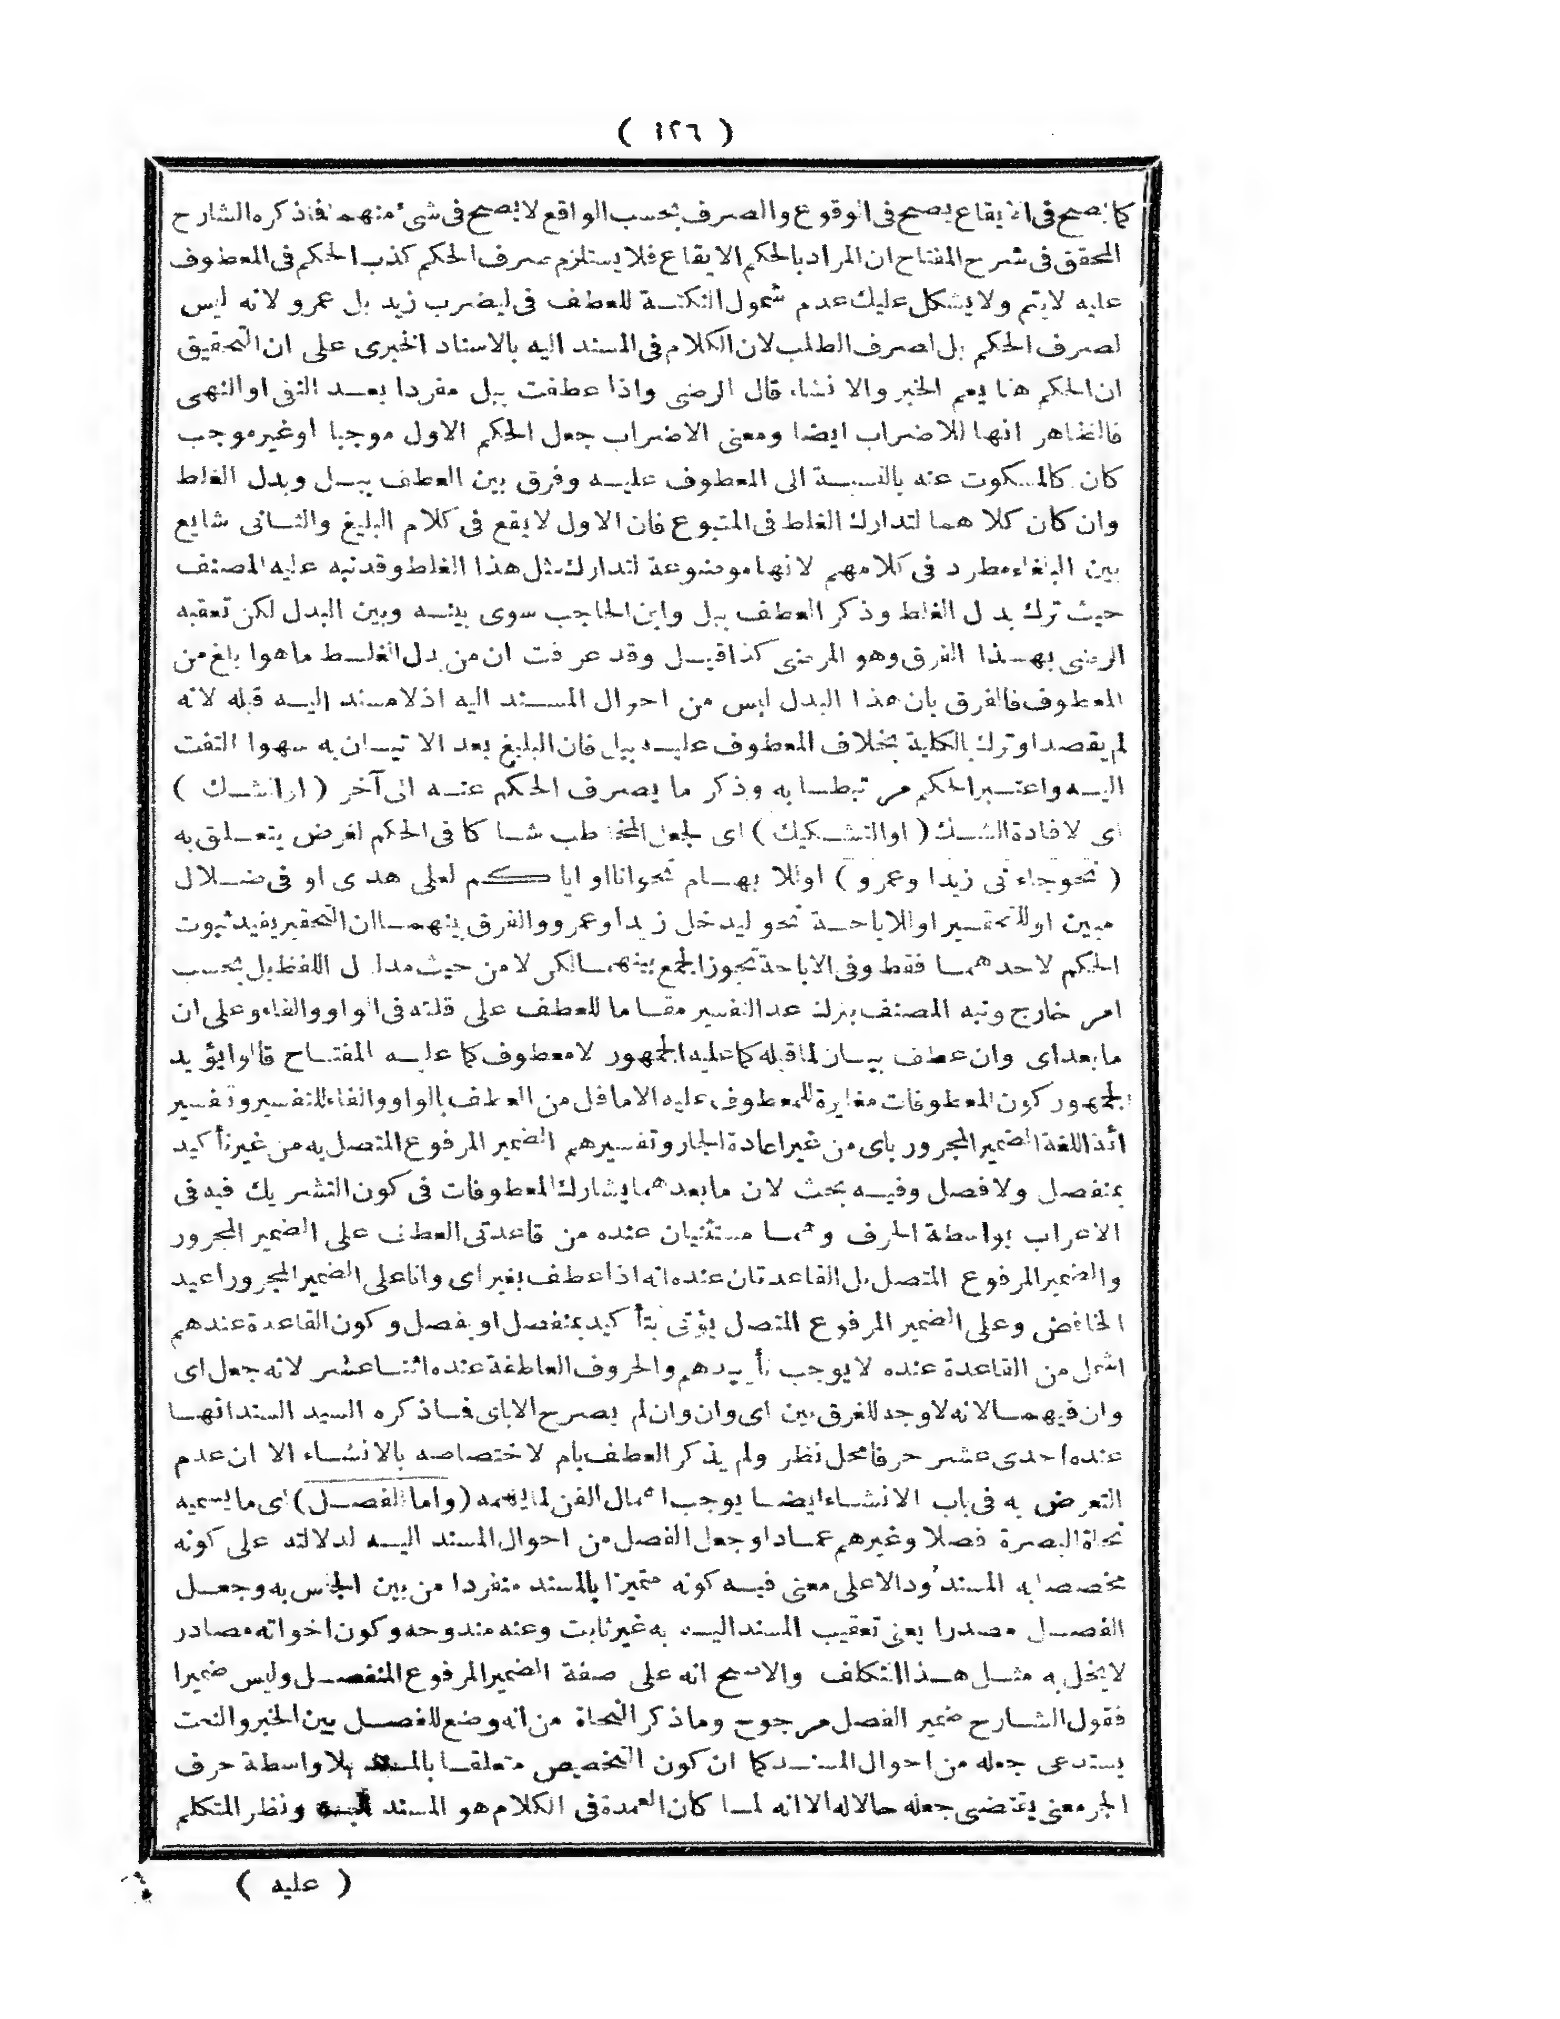 ( ١٢٦ )
كما يصح فى الايقاع يصح فى الوقوع والصرف بحسب الواقع لا يصح فى شئ منهما فاذكره الشارح
المحقق فى شرح المفتاح ان المراد بالحكم الايقاع فلا يستلزم صرف الحكم كذب الحكم فى المعطوف
عليه لا يتم ولا يشكل عليك عدم شمول النكتة للعطف فى ليضرب زيد بل عمرو لانه ليس
لصرف الحكم بل لصرف الطلب لان الكلام فى المسند اليه بالاسناد الخبرى على ان التحقيق
ان الحكم هنا يعم الخبر والانشاء قال الرضى واذا عطفت ببل مفردا بعد النفى او النهى
فالظاهر انها للاضراب ايضا ومعنى الاضراب جعل الحكم الاول موجبا او غير موجب
كان كالمسكوت عنه بالنسبة الى المعطوف عليه وفرق بين العطف ببل وبدل الغلط
وان كان كلاهما لتدارك الغلط فى المتبوع فان الاول لا يقع فى كلام البليغ والثانى شايع
بين البلغاء مطرد فى كلامهم لانها موضوعة لتدارك مثل هذا الغلط وقد نبه عليه المصنف
حيث ترك بدل الغلط وذكر العطف ببل وابن الحاجب سوى بينه وبين البدل لكن تعقبه
الرضى بهذا الفرق وهو المرضى كذا قيل وقد عرفت ان من بدل الغلط ما هو ابلغ من
المعطوف فالفرق بان هذا البدل ليس من احوال المسند اليه اذ لا مسند اليه قبله لانه
لم يقصد او ترك بالكلية بخلاف المعطوف عليه ببل فان البليغ بعد الاتيان به سهوا التفت
اليه واعتبر الحكم مرتبطا به وذكر ما يصرف الحكم عنه الى آخر ( او الشك )
اى لافادة الشك ( او التشكيك ) اى لجعل المخاطب شاكا فى الحكم لغرض يتعلق به
( نحو جاءنى زيد او عمرو ) او للابهام نحو انا او اياكم لعلى هدى او فى ضلال
مبين او للتحقير او للاباحة نحو ليدخل زيد او عمرو والفرق بينهما ان التحقير يفيد ثبوت
الحكم لاحدهما فقط وفى الاباحة تجوز الجمع بينهما لكن لا من حيث مدلول اللفظ بل بحسب
امر خارج ونبه المصنف بترك عد التفسير مقاما للعطف على قلته فى الواو والفاء وعلى ان
ما بعد اى وان عطف بيان لما قبله كما عليه الجمهور لا معطوف كما عليه المفتاح قالوا يؤيد
الجمهور كون المعطوفات مغايرة للمعطوف عليه الا ما قل من العطف بالواو والفاء للتفسير وتفسير
ائمة اللغة الضمير المجرور باى من غير اعادة الجار وتفسيرهم الضمير المرفوع المتصل به من غير تأكيد
بمنفصل ولا فصل وفيه بحث لان ما بعدهما يشارك المعطوفات فى كون التشريك فيه فى
الاعراب بواسطة الحرف وهما مستثنيان عنده من قاعدتى العطف على الضمير المجرور
والضمير المرفوع المتصل بل القاعدتان عنده انه اذا عطف بغير اى وانا على الضمير المجرور اعيد
الخافض وعلى الضمير المرفوع المتصل يؤتى بتأكيد بمنفصل او بفصل وكون القاعدة عندهم
اشمل من القاعدة عنده لا يوجب تأييدهم والحروف العاطفة عنده اثنا عشر لانه جعل اى
وان فيهما لانه لا وجه للفرق بين اى وان وان لم يصرح الا باى فما ذكره السيد السند انها
عنده احدى عشر حرفا محل نظر ولم يذكر العطف بام لاختصاصه بالانشاء الا ان عدم
التعرض به فى باب الانشاء ايضا يوجب اهمال الفن لما يهمه ( واما الفصل ) اى ما يسميه
نحاة البصرة فصلا وغيرهم عمادا وجعل الفصل من احوال المسند اليه لدلالته على كونه
مخصصا به المسند ودالا على معنى فيه كونه متميزا بالمسند منفردا من بين الجنس به وجعل
الفصل مصدرا يعنى تعقيب المسند اليه به غير ثابت وعنه مندوحه وكون اخواته مصادر
لا يخل به مثل هذا التكلف والاصح انه على صفة الضمير المرفوع المنفصل وليس ضميرا
فقول الشارح ضمير الفصل مرجوح وما ذكر النحاة من انه وضع للفصل بين الخبر والنعت
يستدعى جعله من احوال المسند كما ان كون التخصيص متعلقا بالمسند بلا واسطة حرف
الجر معنى يقتضى جعله حالا له الا انه لما كان العمدة فى الكلام هو المسند اليه ونظر المتكلم
( عليه )